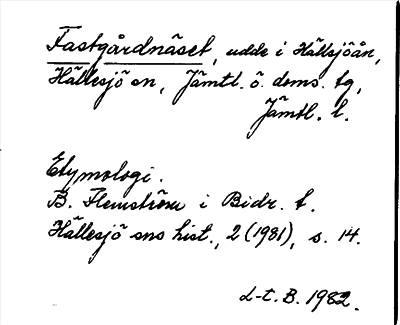 Fastgårdnäset, udde i Hällsjöån,
Hällesjö sn, Jämtl. ö. doms. tg,
Jämtl. l.
Etymologi.
B. Flemström i Bidr. t.
Hällesjö sns hist., 2 (1981), s. 14.
d-t. B. 1982.